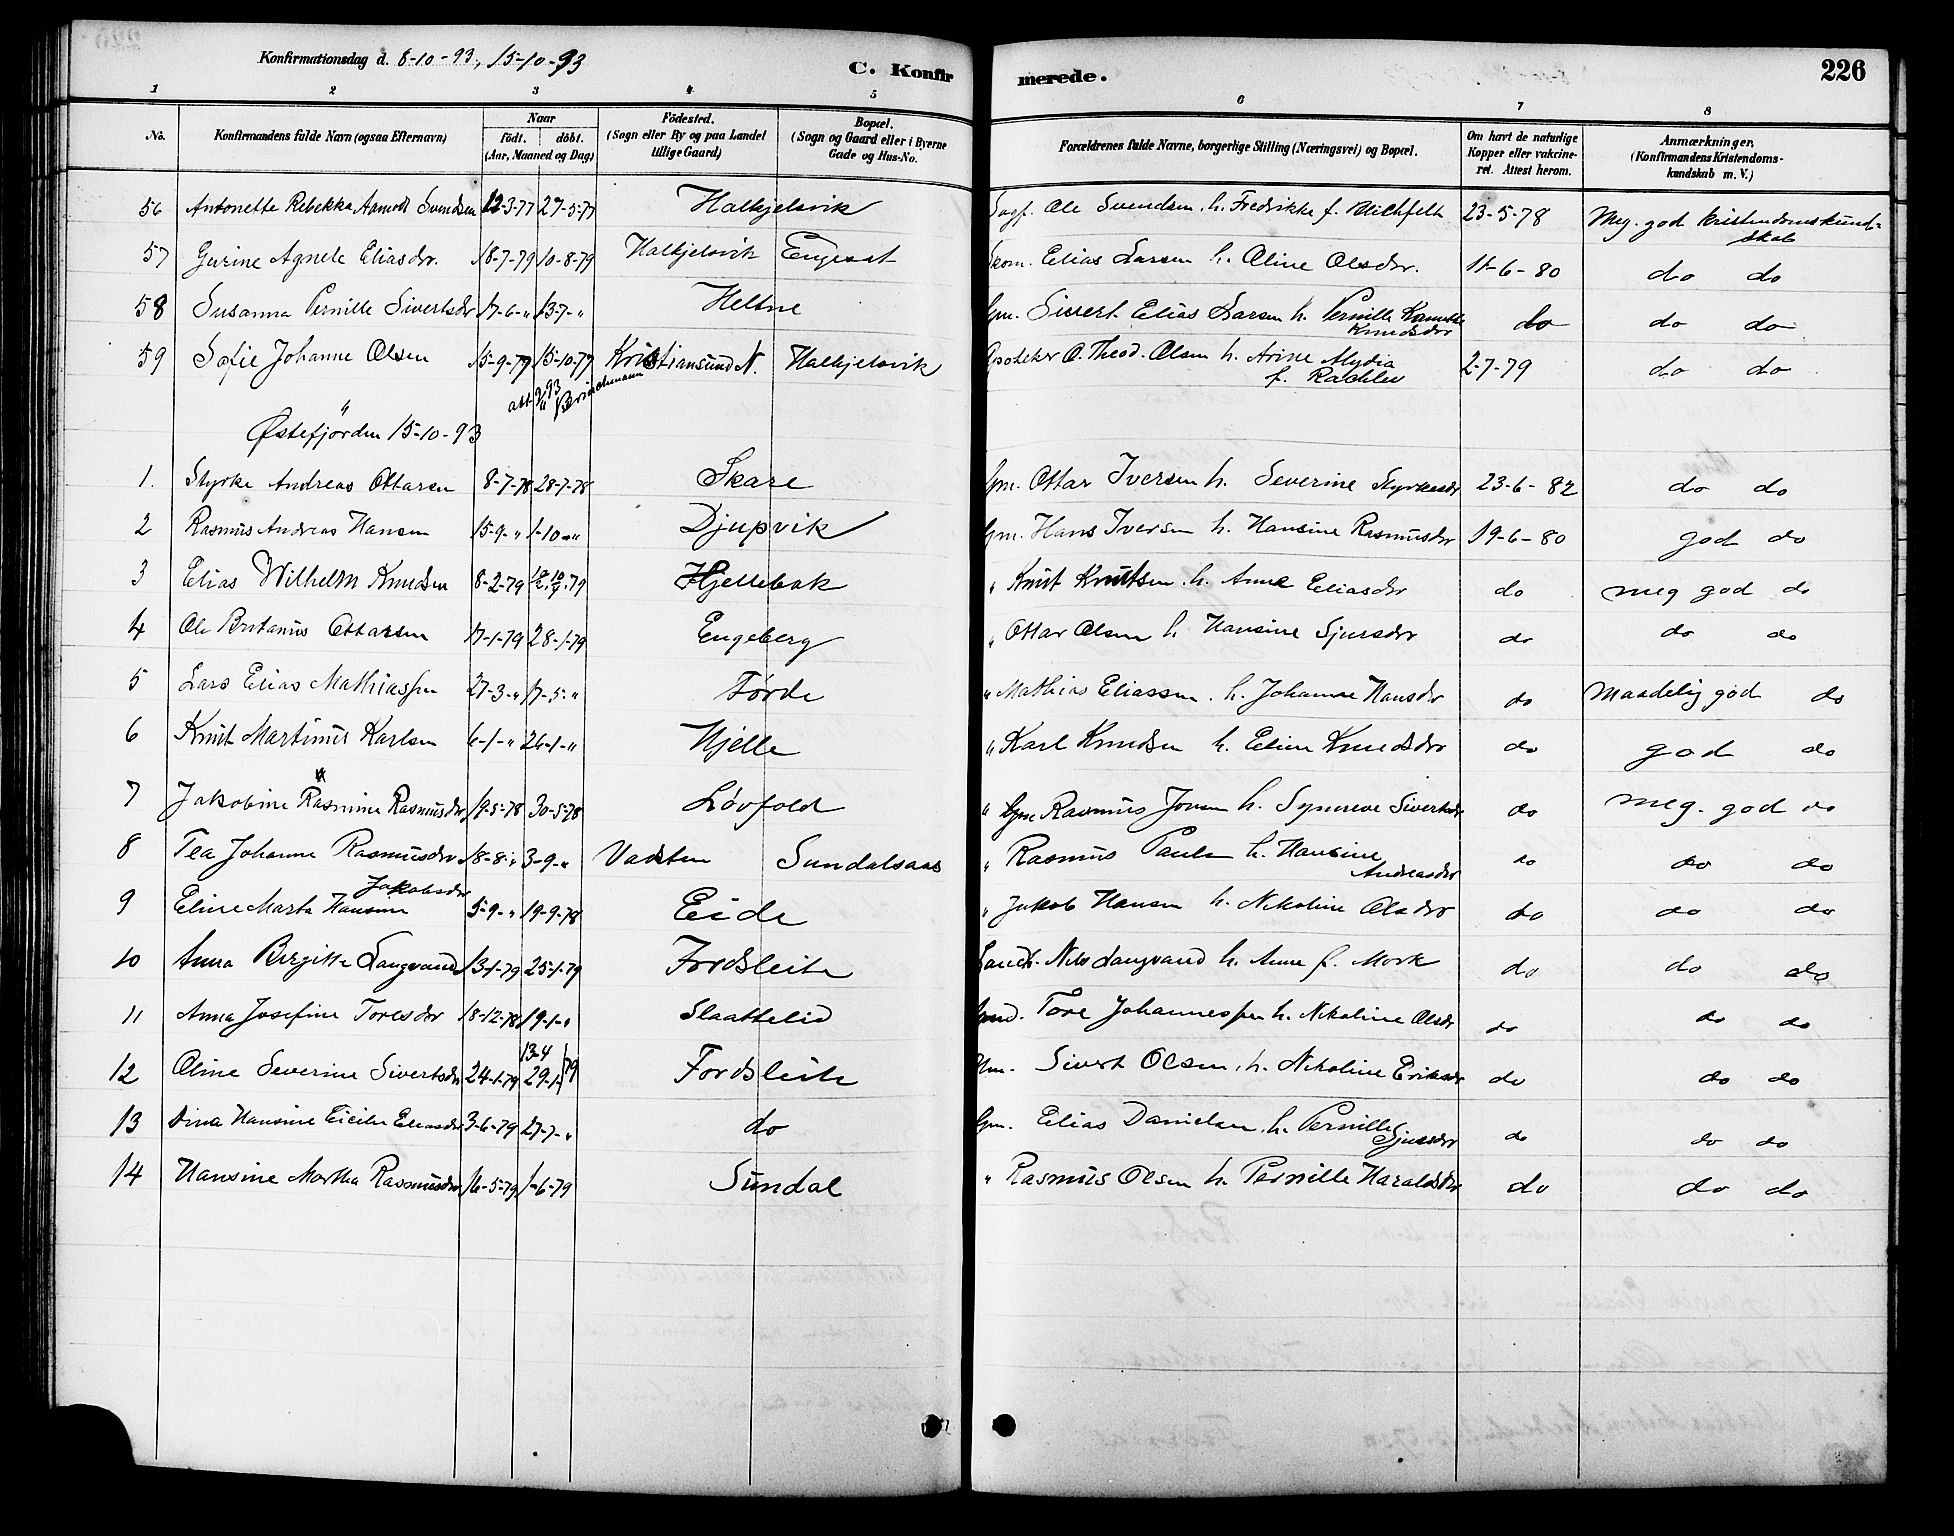 Konfirmationsdag d. 8-10-93, 15-10-93
C. Konfir merede.
226
1 2 3 4 5 6 7 8
No.
Konfirmandens fulde Navn (ogsaa Efternavn)
Naar
födt. döbt.
(Aar, Maaned og Dag)
Födested.
(Sogn eller By og paa Landet
tillige Gaard)
Bopæl.
(Sogn og Gaard eller i Byerne
Gade og Hus-No.
Forældrenes fulde Navne, borgerlige Stilling (Næringsvei) og Bopæl.
Om havt de naturlige
Kopper eller vakcine-
ret. Attest herom.
Anmærkninger.
(Konfirmandens Kristendoms-
kundskab m. V.)
56 Antonette Rebekka Svendsen 12-3-77 27-5-77 Halkjelsvik Ole Svendsen h. Fredrikke f. 23-5-78 Meg. god Kristendomskund-
skab
57 Gurine Agnete Eliasdr. 18-7-79 10-8-79 Halkjelsvik Engeset Skom. Elias Larsen h. Oline Olsdr. 11-6-80 do do
58 Susanna Pernille Sivertsdr 17-6-" 13-7-" Heltne Gm. Sivert Elias Larsen h. Pernille
Knudsdr do do do
59 Sofie Johanne Olsen 15-9-79 15-10-77 Kristiansund N. Halkjelsvik Apotheker O. Theod. Olsen h. Arine
f. 2-7-79 do do
att. 93
"
Østefjorden 15-10-93
1. Styrke Andreas Ottarsen 8-7-78 28-7-78 Skare Gm. Ottar Iversen h. Severine Styrkesdr 23-6-82 do do
2 Rasmus Andreas Hansen 15-9-" 1-10-" Djupvik Gm. Hans Iversen h. Hansine Rasmusdr 19-6-80 god do
3 Elias Wilhelm Knudsen 8-2-79 Hjellebak " Knut Knutsen h. Anne Eliasdr do meg god do
4 Ole Ottarsen 17-1-79 28-1-79 Engeberg " Ottar Olsen h. Hansine Sjursdr do do do
5 Lars Elias Mathiassen 27-3-" 17-5-" Førde " Mathias Eliassen h. Johanne Hansdr do Maadelig god do
6 Knut Martinus Karlsen 6-1-" 26-1-" Hjelle " Karl Knudsen h. Eline Knudsdr do god do
7 Jakobine Rasmine Rasmusdr 19-5-78 30-5-78 Løvfold " Gm Rasmus Jonsen h. Synneve Sivertsdr do meg. god do
8 Tea Johanne Rasmusdr 18-8-" 3-9-" Vadsten Sundalsaas " Rasmus Paulsen h. Hansine
Andreasdr do do do
9 Eline Marta Hansine Jakobsdr 5-9-" 19-9-78 Eide " Jakob Hansen h. Nikoline Olsdr do do do
10 Anna Birgitte Langvand 13-1-79 25-1-79 Fordsleite Nils Langvand h. Anne f. Mork do do do
11 Anna Josefine Toresdr 18-12-78 19-1-" Slaattelid Tore Johannessen h. Nikoline Olsdr do do do
12 Oline Severine Sivertsdr 24-1-79 13-4 29-1-79 Fordsleite Gm. Sivert Olsen h. Nikoline Eriksdr do do do
13 Dina Hansine Eliasdr 3-6-79 27-7-" do Gm. Elias Danielsen h. Pernille
Sjursdr do do do
14 Hansine Martha Rasmusdr 16-5-79 1-6-79 Sundal " Rasmus Olsen h. Pernille Haraldsdr do do do